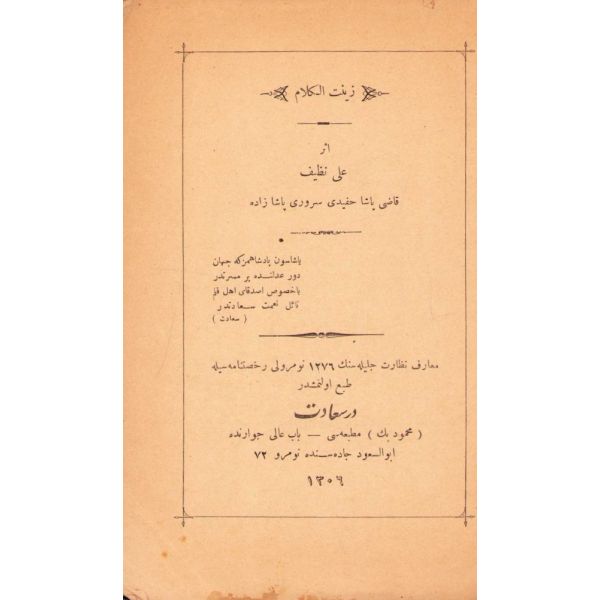 زينت الكلام
اثر
على نظيف
قاضى پاشا حفيدى سرورى پاشا زاده
ياشاسون پادشاهمز كه جهان
دور عدلنده پر مسرتدر
باخصوص اصدقاى اهل قلم
نائل نعمت سعادتدر
( سعادت )
معارف نظارت جليله سنك ١٢٧٦ نومرولى رخصتنامه سيله
طبع اولنمشدر
درسعادت
( محمود بك ) مطبعه سى — باب عالى جوارنده
ابوالسعود جاده سنده نومرو ٧٢
١٣٠٦